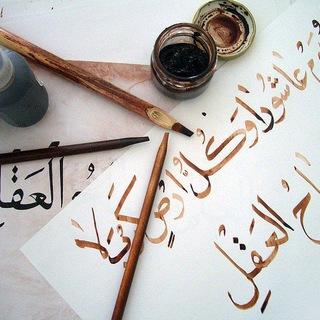 عَاشُورَا وَكُلُّ أَرْضٍ كَرْبَلَا
العَقْلِ
العَقْلِ